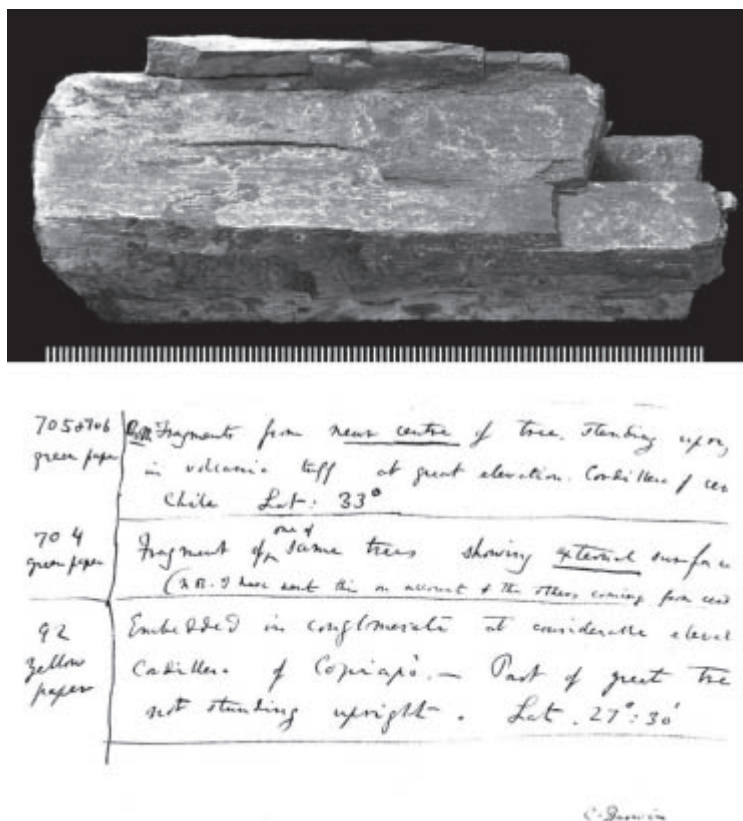 705 & 706 Fragments from near centre of tree, standing upon,
green paper in volcanic tuff at great elevation. Cordillera of cen
Chile Lat: 33°
704 Fragment of one of same trees showing external surface
green paper (N.B. I have sent this on account of the others coming from cen
92 Embedded in conglomerate at considerable eleva
yellow Cordillera of Copiapò. — Part of great tre
paper not standing upright. Lat. 27°:30'
C. Darwin